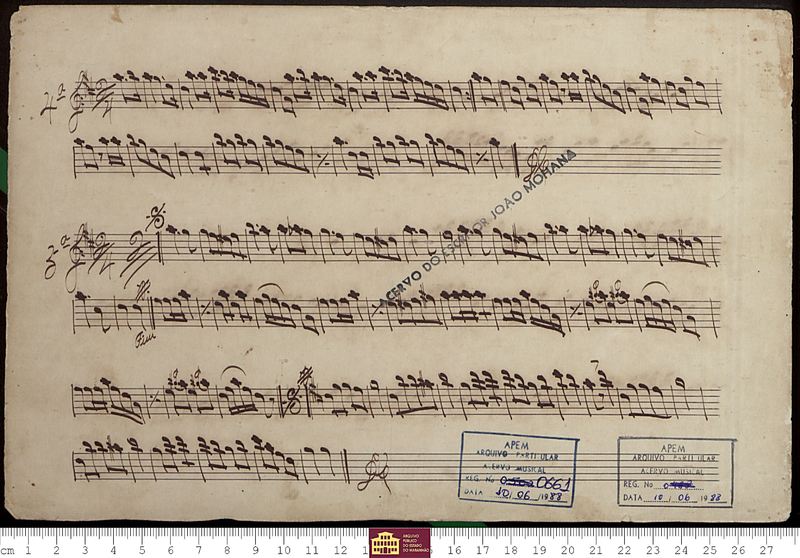 4ª
2 4
ACERVO DO ESCRITOR JOÃO MOHANA
5ª
2 4
Fim
7
APEM
ARQUIVO PARTICULAR
ACERVO MUSICAL
REG. No 0661
DATA 10 / 06 / 1988
APEM
ARQUIVO PARTICULAR
ACERVO MUSICAL
REG. No
DATA 10 / 06 / 1988
cm 1 2 3 4 5 6 7 8 9 10 11 12 16 17 18 19 20 21 22 23 24 25 26 27
ARQUIVO
PÚBLICO
DO ESTADO
DO MARANHÃO